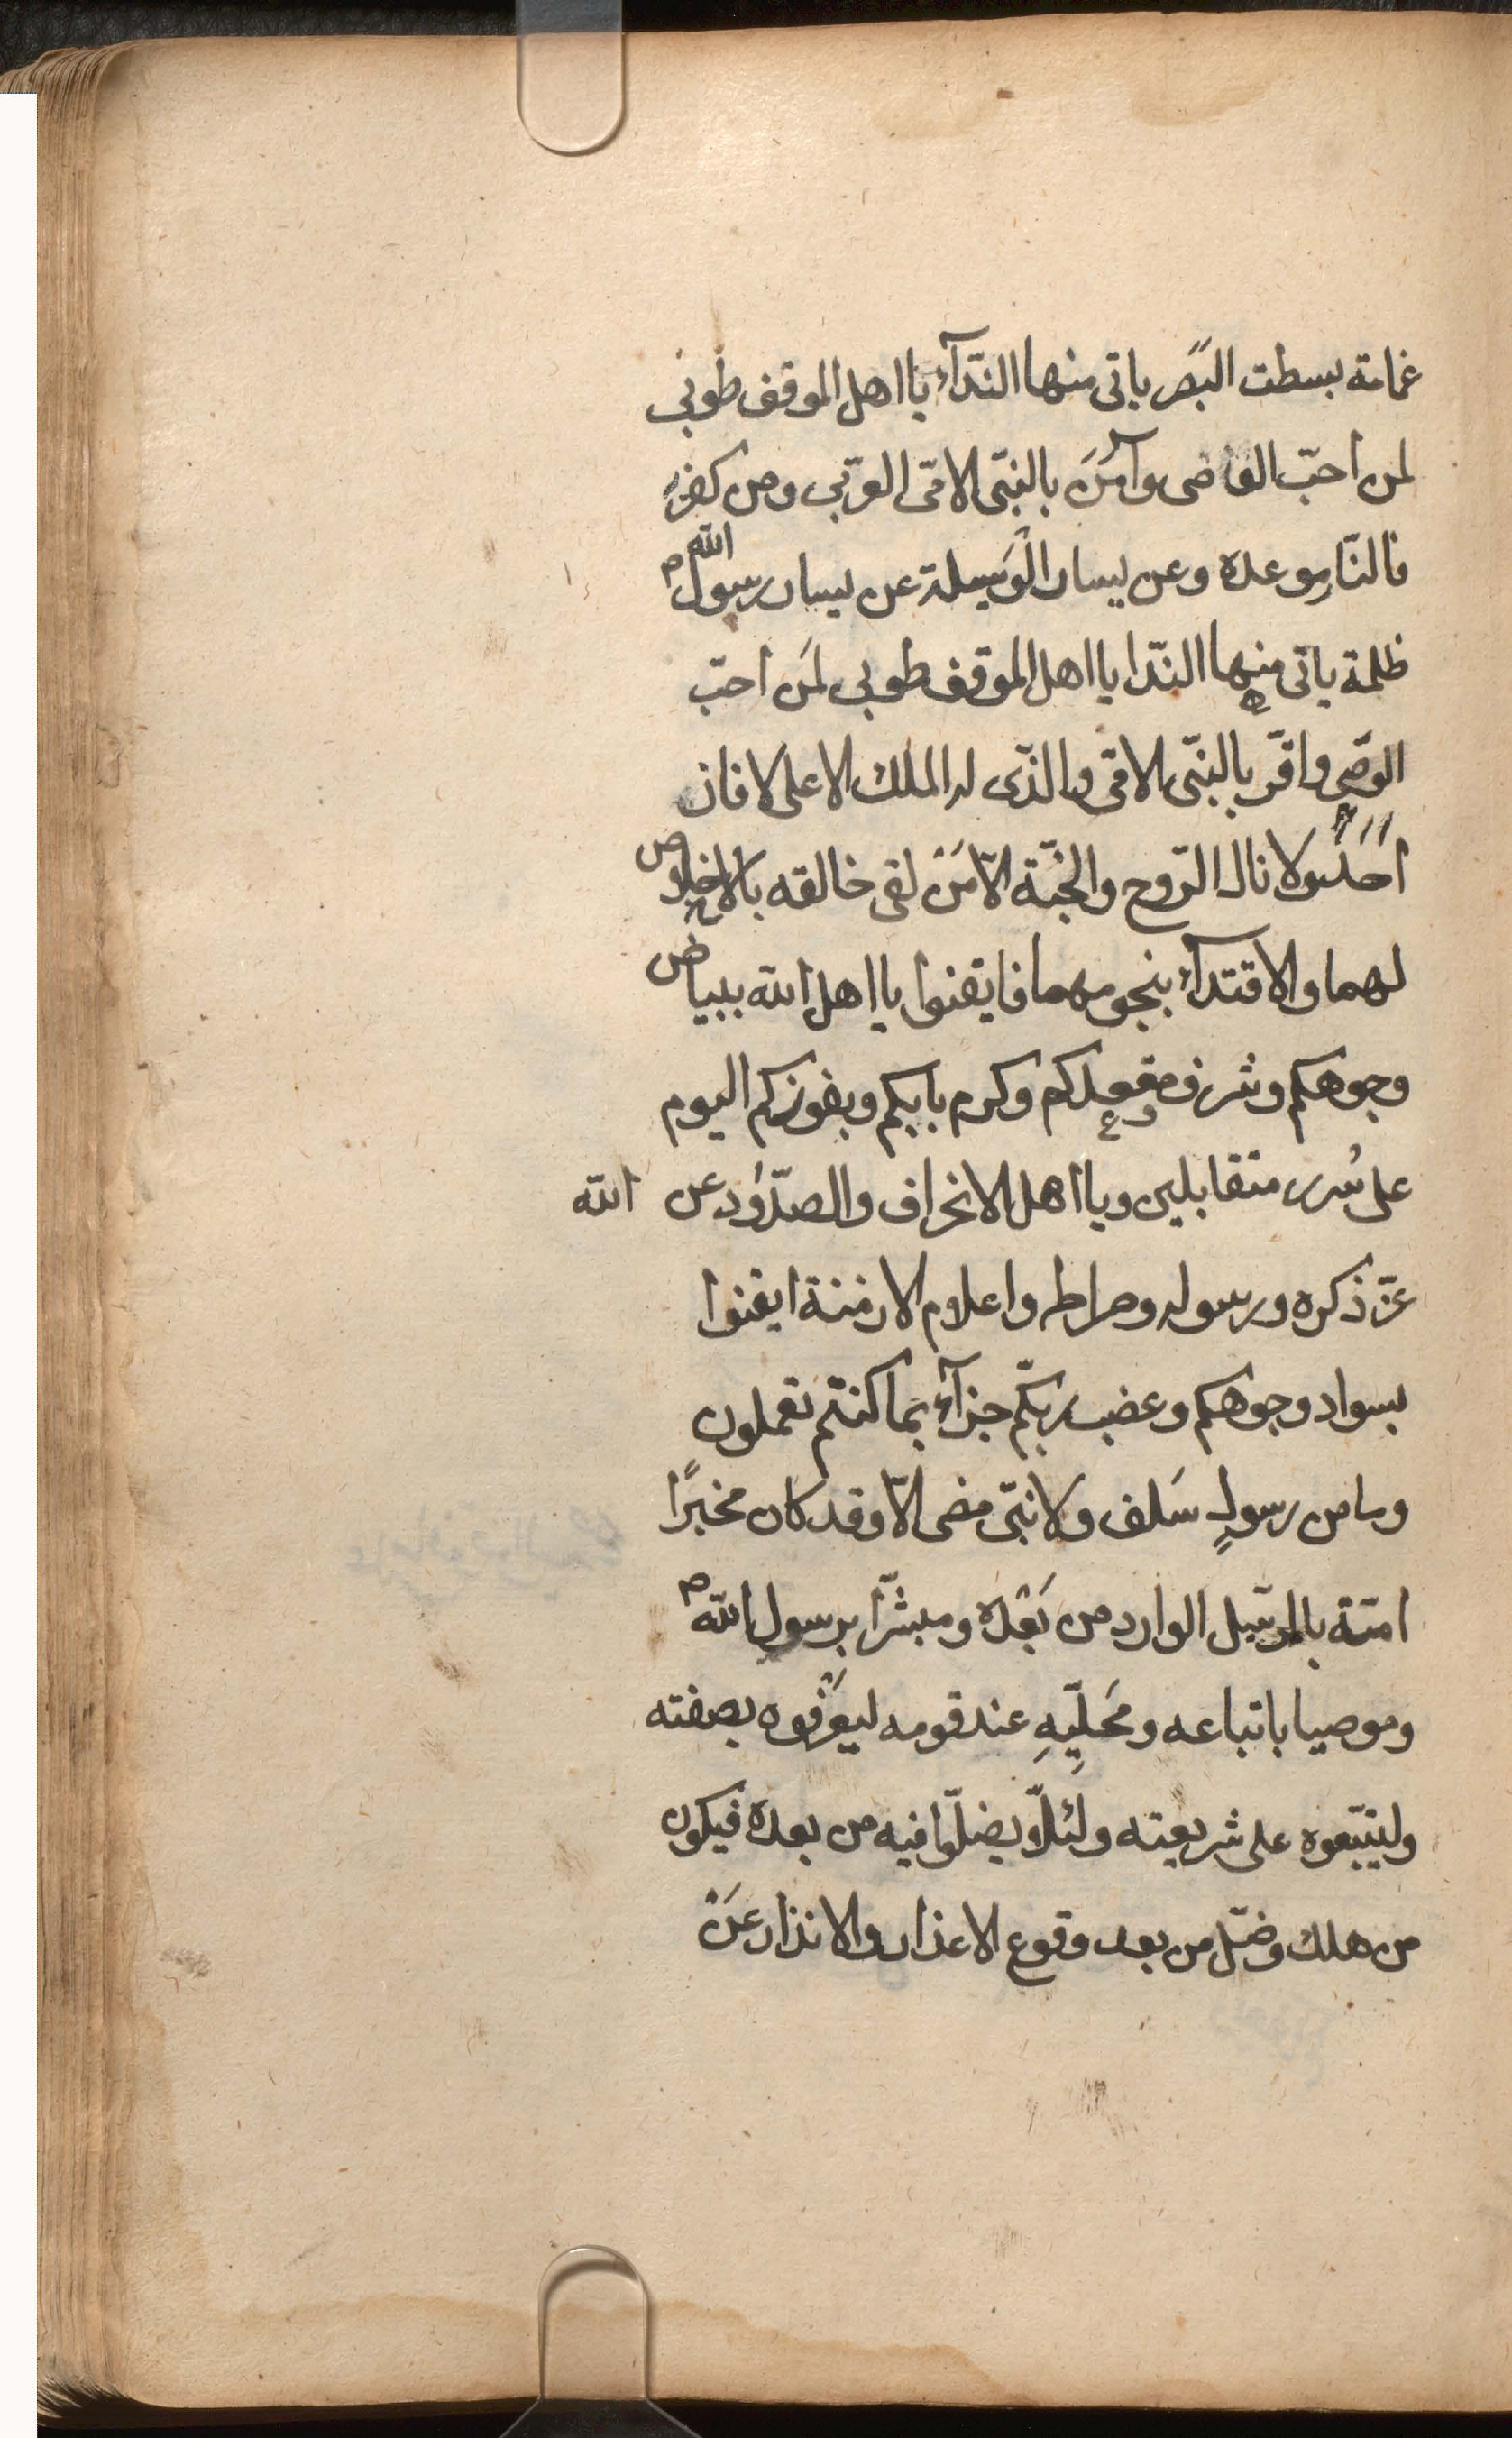 غمامة بسطت البصر ياتى منها الندّآء يا اهل الموقف طوبى
لمن احبّ الوصى وآمَنَ بالنبّى الامّى العربّى ومن كفر
فالنّار موعده وعن يسار الْوَسيلة عن يسار رسول الله ص
ظلمة ياتى منها الندّا يا اهل الموقف طوبى لمَن احبّ
الوصّى واقرّ بالنبّى الامّى والذّى له الملك الاعلى لا فاز
احَدٌ ولا نال الرّوح والجنّة الاّ مَنْ لقى خالقه بالاخلاص
لهما والاقتدآء بنجومهما فايقنوا يا اهل الله ببياض
وجوهكم وشرف مقعدكم وكرم بابكم وبفوزكم اليوم
على سُرر متقابلين ويا اهل الانحراف والصدّود عن الله
عزّ ذكره ورسوله وصراطه واعلام الازمنة ايقنوا
بسواد وجوهكم وغضب ربكّم جزآء بما كنتم تعملون
وما من رسولٍ سَلف ولا نبّى مضى الاّ وقد كان مخبرًا
امتّه بالمرسّل الوارد من بَعْده ومبشّرًا برسول الله ص
وموصيا باتباعه ومَحَلِّيِهِ عند قومه ليعَرْفوه بصفته
وليتبّعوه على شريعته ولئلاّ يضلّوا فيه من بعده فيكون
من هلك وضّل من بعد وقوع الاعذار والانذار عَنْ